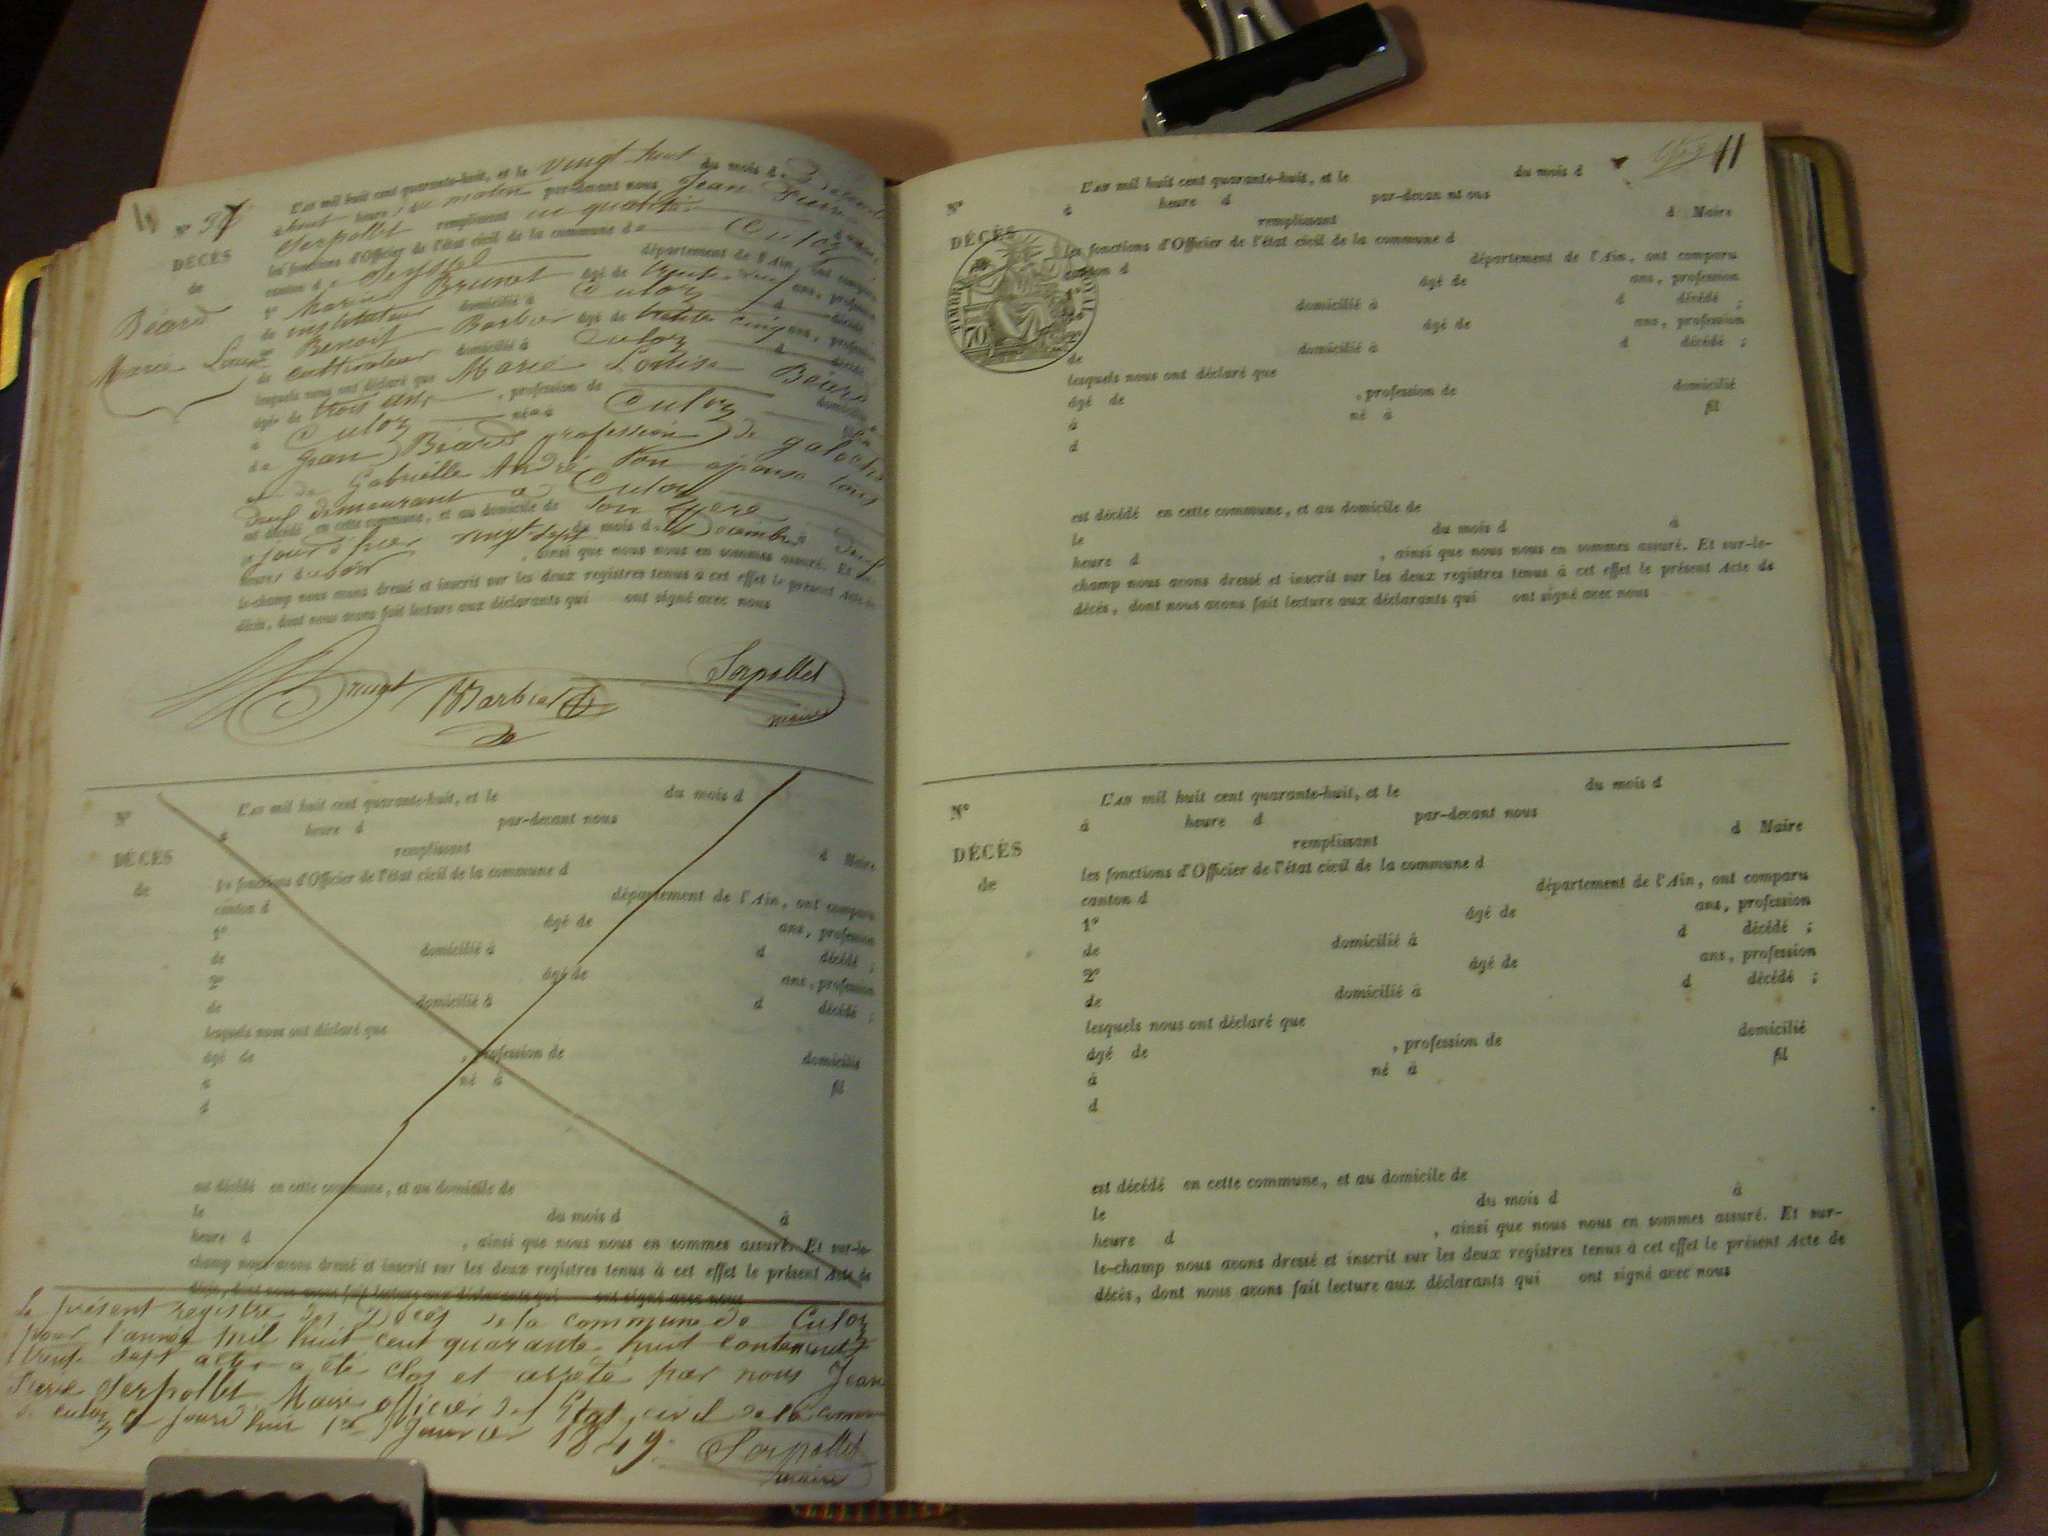 N° 37
DÉCÈS
de
Béard
Marie Louise
L'AN mil huit cent quarante-huit, et le vingt huit du mois de Décembre
à huit heures du matin par-devant nous Jean Pierre
Serpollet remplissant en qualité de Maire
les fonctions d'Officier de l'état civil de la commune de Culoz
canton de Seyssel département de l'Ain, ont comparu
1° Marin Brunet âgé de trente neuf ans, profession
de instituteur domicilié à Culoz d décédé
2° Benoit Barbier âgé de trente cinq ans, profession
de cultivateur domicilié à Culoz d décédé
lesquels nous ont déclaré que Marie Louise Béard
âgée de trois ans, profession de domiciliée
à Culoz née à Culoz fille
de Jean Béard profession de
et de Gabrielle André son épouse tous
deux demeurant à Culoz
est décédée en cette commune, et au domicile de son père
le jour d'hier vingt sept du mois de Décembre à deux
heures du soir, ainsi que nous nous en sommes assuré. Et sur-
le-champ nous avons dressé et inscrit sur les deux registres tenus à cet effet le présent Acte de
décès, dont nous avons fait lecture aux déclarants qui ont signé avec nous
Brunet Barbier Serpollet
maire
N°
DÉCÈS
de
L'AN mil huit cent quarante-huit, et le du mois d
à heure d par-devant nous
remplissant d Maire
les fonctions d'Officier de l'état civil de la commune d
canton d département de l'Ain, ont comparu
1° âgé de ans, profession
de domicilié à d décédé ;
2° âgé de ans, profession
de domicilié à d décédé ;
lesquels nous ont déclaré que
âgé de , profession de domicilié
à né à fil
d
est décédé en cette commune, et au domicile de
le du mois d à
heure d , ainsi que nous nous en sommes assuré. Et sur-le-
champ nous avons dressé et inscrit sur les deux registres tenus à cet effet le présent Acte de
décès, dont nous avons fait lecture aux déclarants qui ont signé avec nous
Le présent registre des Décès de la commune de Culoz
pour l'année mil huit cent quarante huit contenant
trente sept actes a été clos et arrêté par nous Jean
Pierre Serpollet Maire officier de l'Etat civil de la commune
de Culoz le jourd'hui 1er Janvier 1849.
Serpollet
maire
11
N°
DÉCÈS
TIMBRE ROYAL
70
L'AN mil huit cent quarante-huit, et le du mois d
à heure d par-devan nt ous
remplissant d Maire
les fonctions d'Officier de l'état civil de la commune d
canton d département de l'Ain, ont comparu
1° âgé de ans, profession
de domicilié à d décédé ;
2° âgé de ans, profession
de domicilié à d décédé ;
lesquels nous ont déclaré que
âgé de , profession de domicilié
à né à fil
d
est décédé en cette commune, et au domicile de
le du mois d à
heure d , ainsi que nous nous en sommes assuré. Et sur-le-
champ nous avons dressé et inscrit sur les deux registres tenus à cet effet le présent Acte de
décès, dont nous avons fait lecture aux déclarants qui ont signé avec nous
N°
DÉCÈS
de
L'AN mil huit cent quarante-huit, et le du mois d
à heure d par-devant nous
remplissant d Maire
les fonctions d'Officier de l'état civil de la commune d
canton d département de l'Ain, ont comparu
1° âgé de ans, profession
de domicilié à d décédé ;
2° âgé de ans, profession
de domicilié à d décédé ;
lesquels nous ont déclaré que
âgé de , profession de domicilié
à né à fil
d
est décédé en cette commune, et au domicile de
le du mois d à
heure d , ainsi que nous nous en sommes assuré. Et sur-
le-champ nous avons dressé et inscrit sur les deux registres tenus à cet effet le présent Acte de
décès, dont nous avons fait lecture aux déclarants qui ont signé avec nous